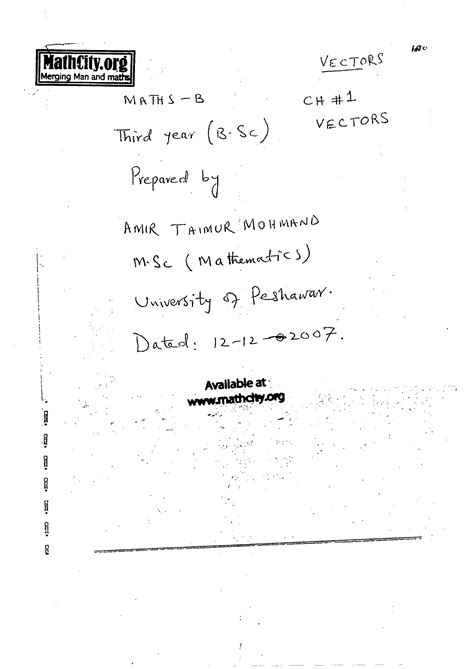 MathCity.org
Merging Man and maths
VECTORS
MATHS - B
CH #1
VECTORS
Third year (B.Sc)
Prepared by
AMIR TAIMUR MOHMAND
M.Sc (Mathematics)
University of Peshawar.
Dated: 12-12-2007.
Available at
www.mathcity.org